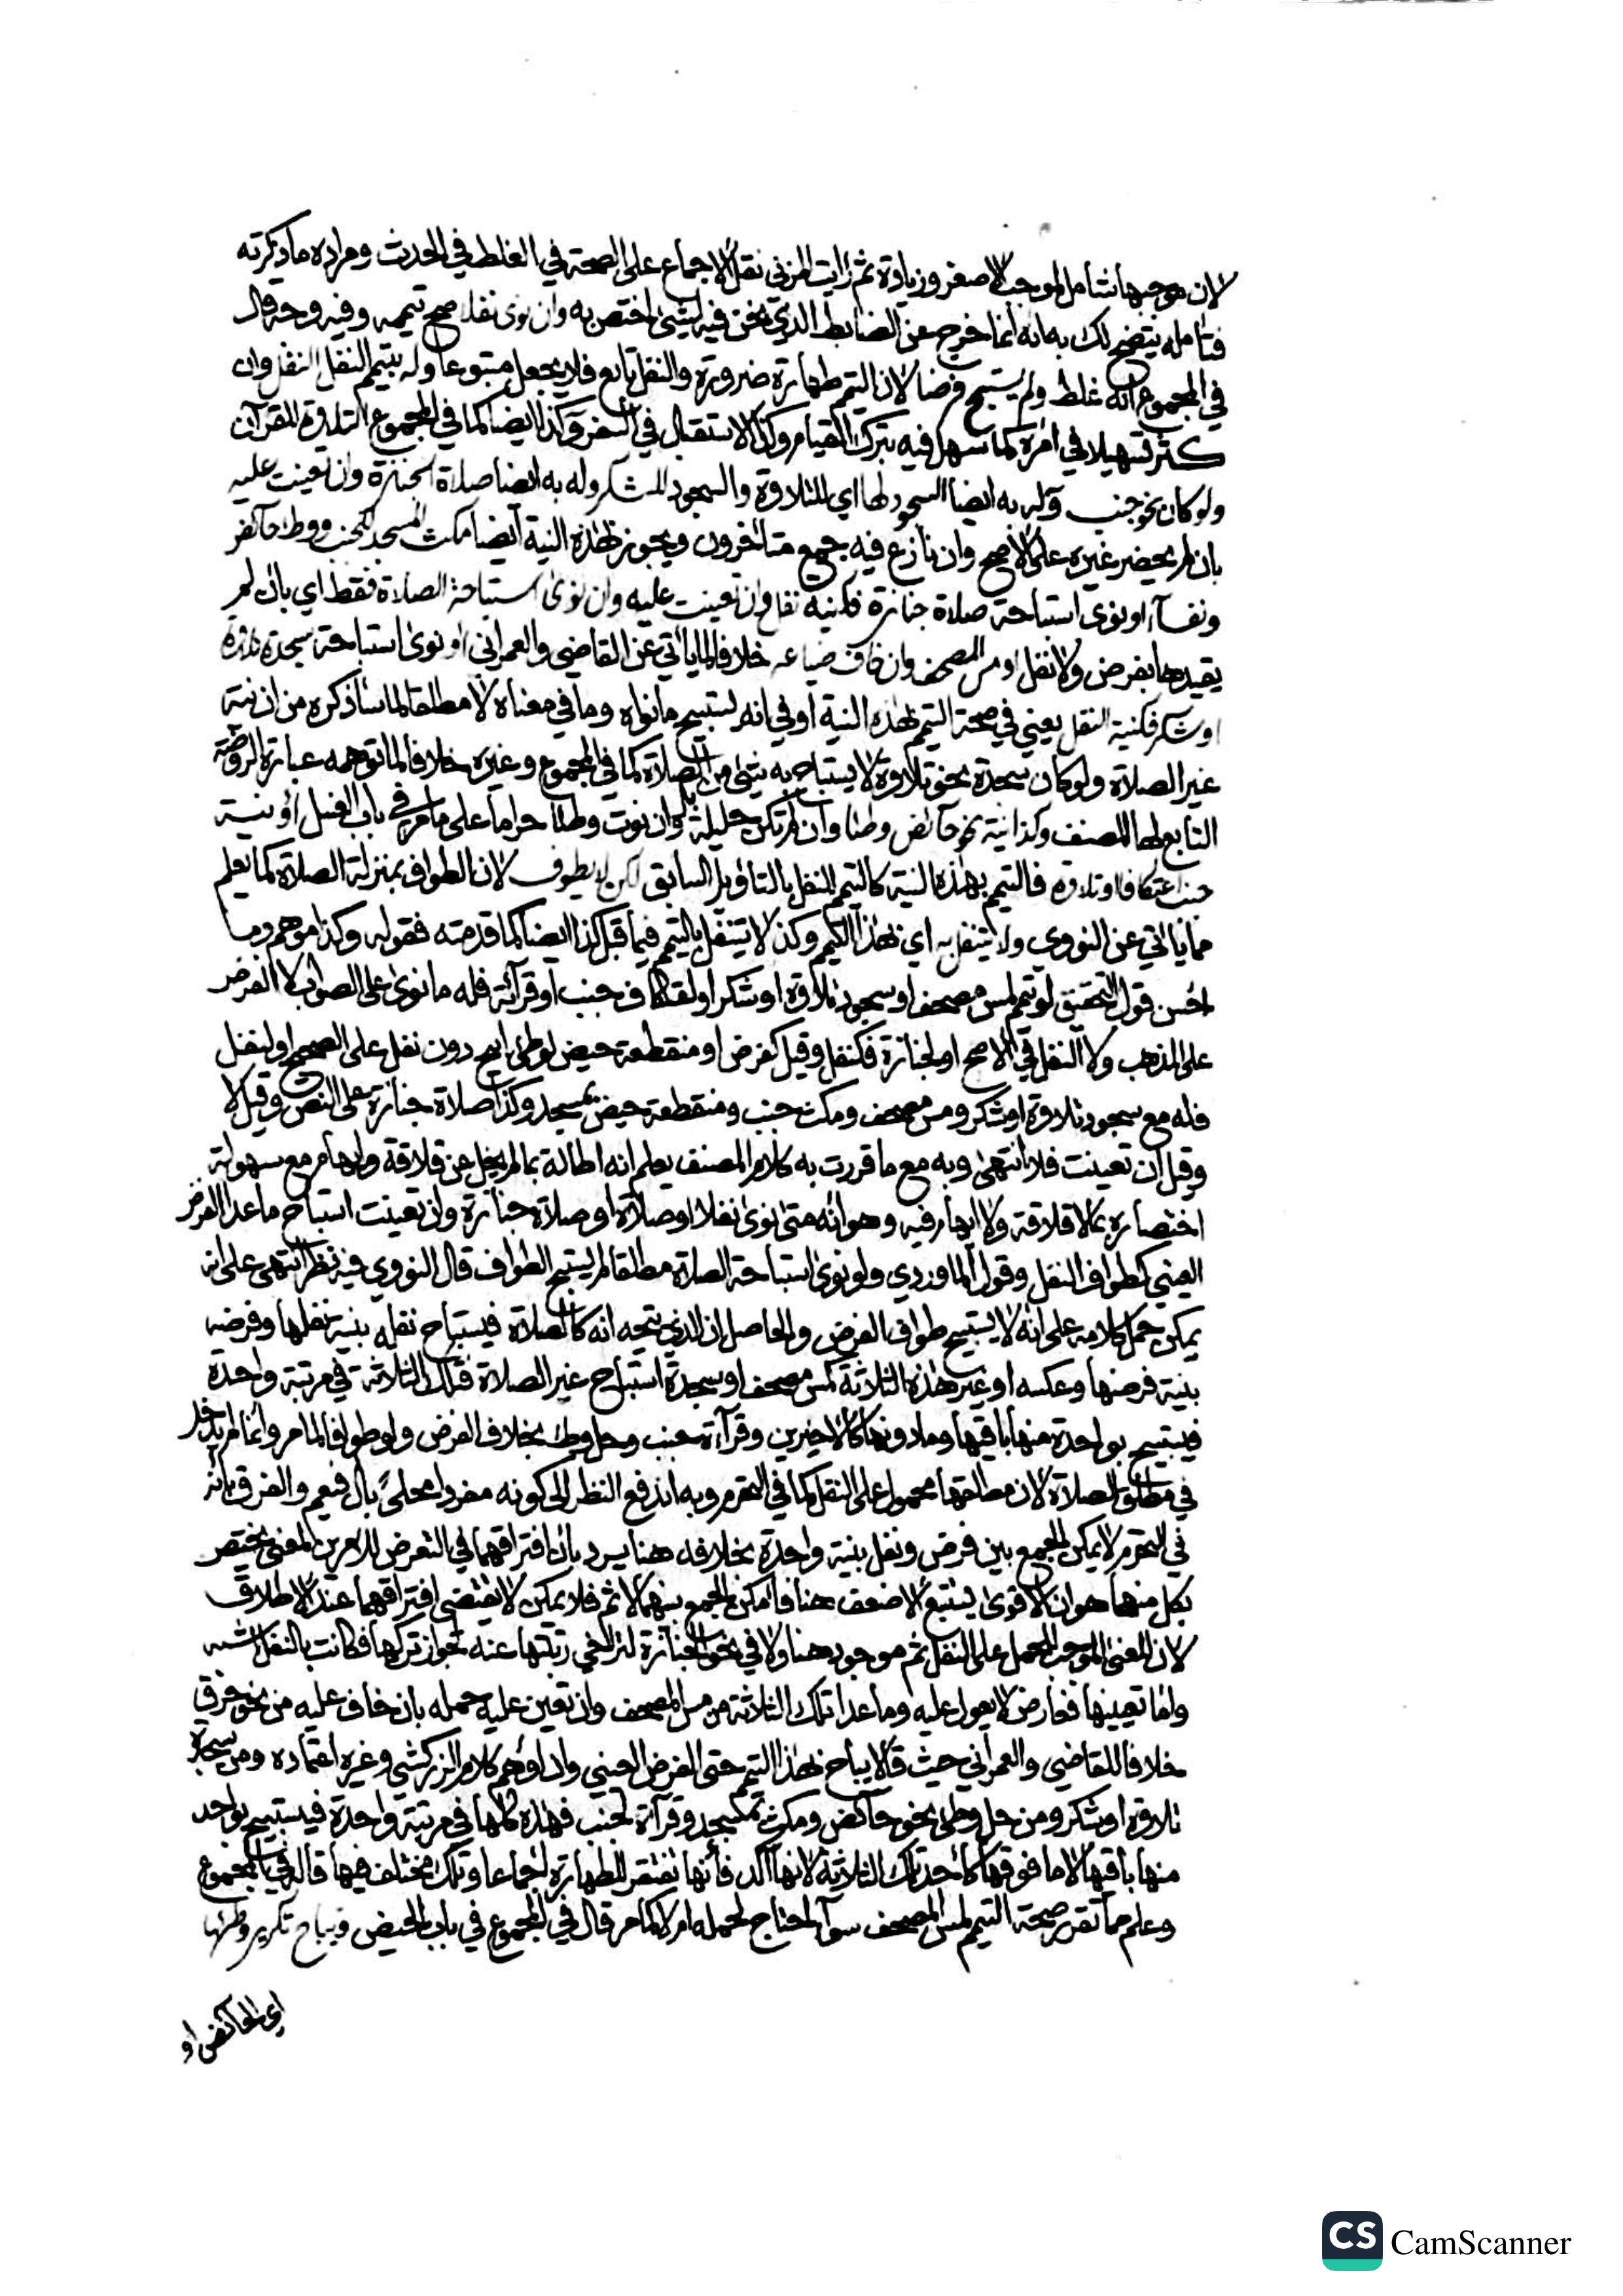 لان موجبها شامل لموجب الاصغر وزيادة ثم رايت المزني نقل الاجماع على الصحة في الغلط في الحدث ومراده ما ذكرته
فتامله يتضح لك به انه انما خرج عن الضابط الذي نحن فيه لشئ اختص به وان نوى نفلا صح تيممه وفيه وجه قال
في المجموع انه غلط ولم يستبح فرضا لان التيمم طهارة ضرورة والنفل تابع فلا يجعل متبوعا وله بتيمم النفل النفل وان
كثر تسهيلا في امره كما سهل فيه بترك القيام وكذا الاستقبال في السفر وكذا ايضا كما في المجموع التلاوة للقرآن
ولو كان نحو جنب وله به ايضا السجود لها اي للتلاوة والسجود للشكر وله به ايضا صلاة الجنازة وان تعينت عليه
بان لم يحضر غيره على الاصح وان نازع فيه جمع متاخرون ويجوز بهذه النية ايضا مكث المسجد لجنب ووطئ حائض
ونفسآء او نوى استباحة صلاة جنازة فكنية نفل وان تعينت عليه وان نوى استباحة الصلاة فقط اي بان لم
يقيدها بفرض ولا نفل او مس المصحف وان خاف ضياعه خلافا لما ياتي عن القاضي والعمراني او نوى استباحة سجدة تلاوة
او شكر فكنية النفل يعني في صحة التيمم بهذه النية او في انه يستبيح ما نواه وما في معناه لا مطلقا لما ساذكره من ان نية
غير الصلاة ولو كان سجدة نحو تلاوة لا يستباح به شئ من الصلاة كما في المجموع وغيره خلافا لما توهمه عبارة الروضة
التابع لها المصنف وكذا نية نحو حائض وطئا وان لم تكن حليلة وان نوت وطئا حراما على ما مر في باب الغسل او نية
جنب اعتكافا او تلاوة فالتيمم بهذه النية كالتيمم للنفل بالتاويل السابق لكن لا يطوف لان الطواف بمنزلة الصلاة كما يعلم
مما ياتي عن النووي ولا يتنفل به اي بهذا التيمم وكذا لا يتنفل بالتيمم فيما قبل كذا ايضا كما قدمته فقوله وكذا موهم وما
احسن قول التحقيق لو تيمم لمس مصحف او سجود تلاوة او شكر او لعتكاف جنب او قرآئة فله ما نوى على الصواب لا الفرض
على المذهب ولا النفل في الاصح او لجنازة فكنفل وقيل كفرض او منقطعة حيض لوطئ ابيح دون نفل على الصحيح او لنفل
فله مع سجود تلاوة او شكر ومس مصحف ومكث جنب ومنقطعة حيض بمسجد وكذا صلاة جنازة على النص وقيل لا
وقيل ان تعينت فلا انتهى وبه مع ما قررت به كلام المصنف يعلم انه اطالة بما لم يخل عن قلاقة وابهام مع سهولة
اختصاره بما لا قلاقة ولا ابهام فيه وهو انه متى نوى نفلا او صلاة او صلاة جنازة وان تعينت استباح ما عدا الفرض
العيني كطواف النفل وقول الماوردي ولو نوى استباحة الصلاة مطلقا لم يستبح الطواف قال النووي فيه نظر انتهى على انه
يمكن حمل كلامه على انه لا يستبيح طواف الفرض والحاصل ان الذي يتجه انه كالصلاة فيستباح نفله بنية نفلها وفرضه
بنية فرضها وعكسه او غير هذه الثلاثة كمس مصحف او سجدة استباح غير الصلاة فتلك الثلاثة في مرتبة واحدة
فيستبيح بواحدة منها باقيها وما دونها كالاخيرين وقرآءة جنب وحل وطئ بخلاف الفرض ولو طوافا لما مر وانما لم يدخل
في مطلق الصلاة لان مطلقها محمول على النفل كما في التحرم وبه اندفع النظر الى كونه مفردا محلى بال فيعم والفرق بانه
في التحرم لا يمكن الجمع بين فرض ونفل بنية واحدة بخلافه هنا يرد بان افتراقهما في التعرض للامرين لمعنى يختص
بكل منهما هو ان الاقوى يستتبع الاضعف هنا فامكن الجمع بينهما لا ثم فلا يمكن لا يقتضي افتراقهما عند الاطلاق
لان المعنى الموجب للحمل على النفل ثم موجود هنا ولا في نحو الجنازة لتراخي رتبتها عنه لجواز تركها فكانت بالنفل اشبه
واما تعينها فعارض لا يعول عليه وما عدا تلك الثلاثة من مس المصحف وان تعين عليه حمله بان خاف عليه من نحو غرق
خلافا للقاضي والعمراني حيث قالا يباح بهذا التيمم حتى الفرض العيني وان اوهم كلام الزركشي وغيره اعتماده ومن سجدة
تلاوة او شكر ومن حل وطئ نحو حائض ومكث بمسجد وقرآءة لجنب فهذه كلها في مرتبة واحدة فيستبيح بواحد
منها باقيها لا ما فوقها كاحد تلك الثلاثة لانها آكد فانها تفتقر للطهارة اجماعا وتلك مختلف فيها قاله في المجموع
وعلم مما تقرر صحة التيمم لمس المصحف سوآء احتاج لحمله ام لا كما مر قال في المجموع في باب الحيض ويباح تكرير وطئها
اي الحائض او
CS CamScanner